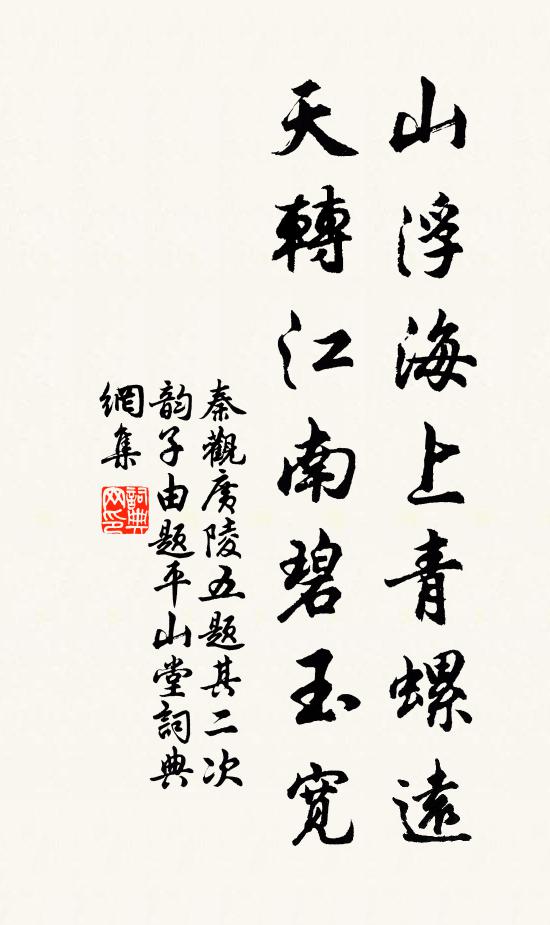 山浮海上青螺遠
天轉江南碧玉寬
秦觀廣陵五題其二次
韵子由題平山堂詞典
網集
詞典
网印